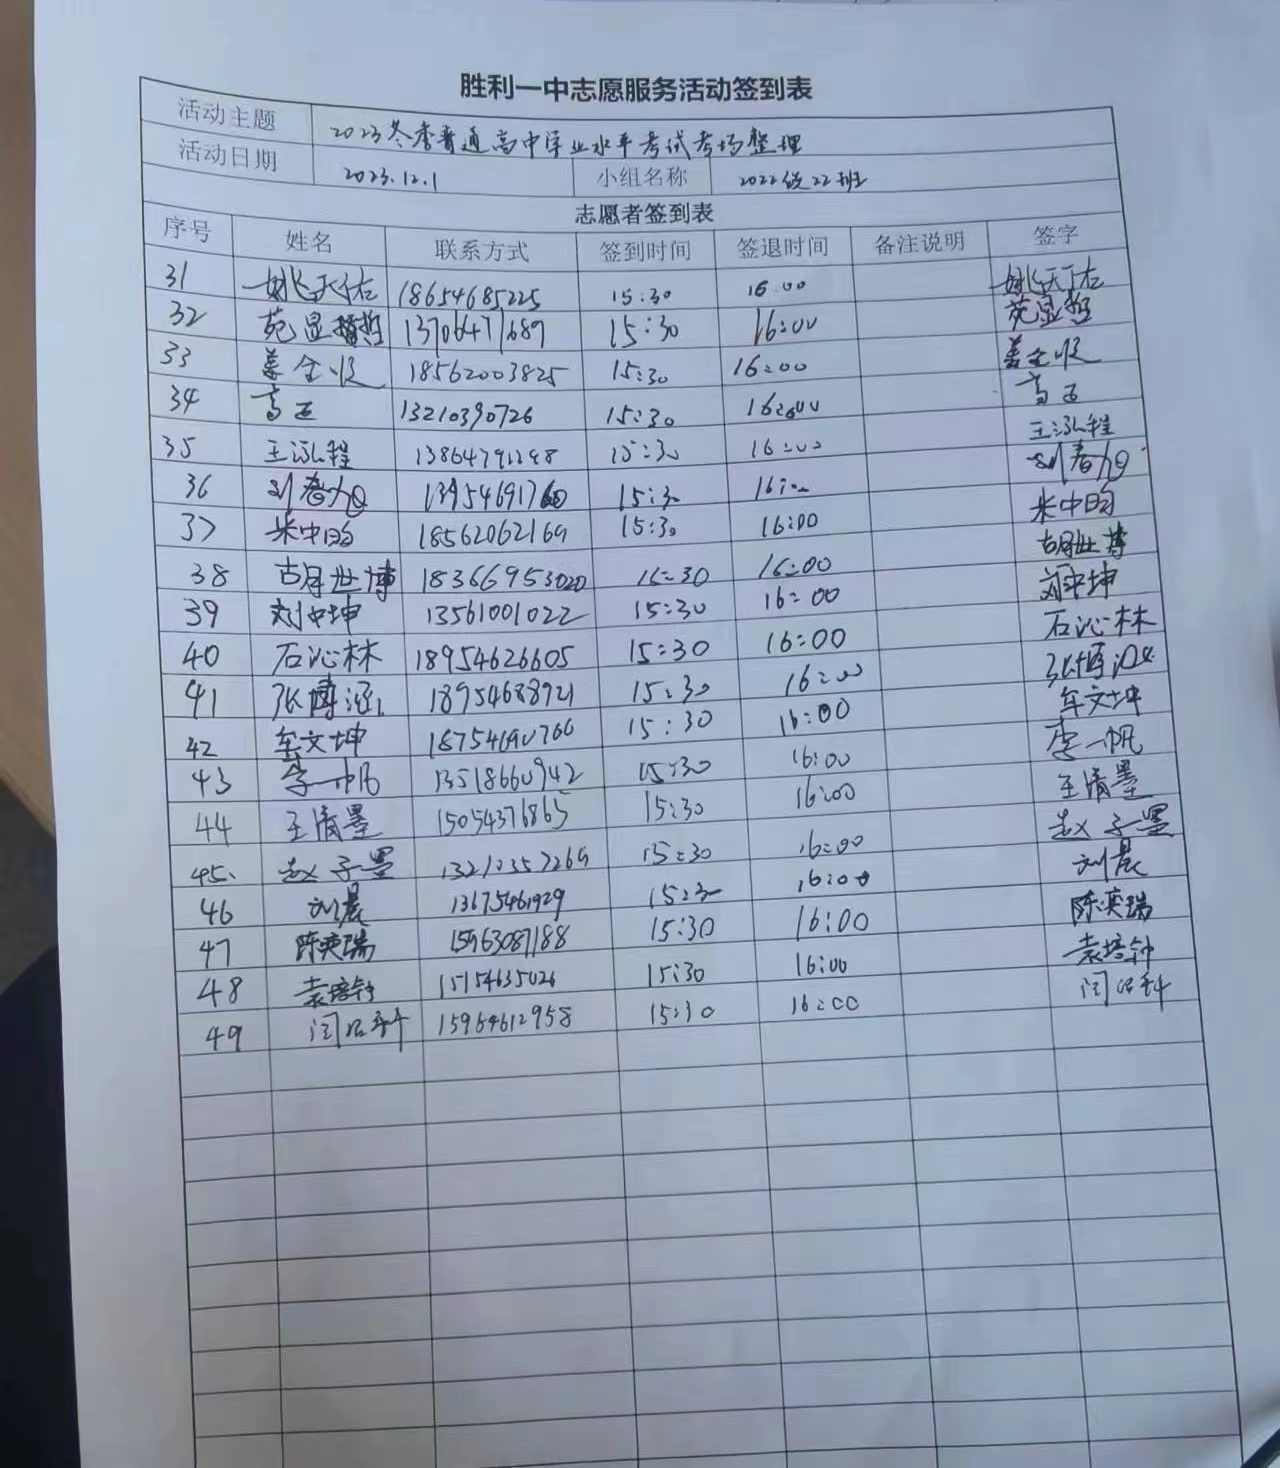 胜利一中志愿服务活动签到表
活动主题 2023冬季普通高中学业水平考试考场整理
活动日期 2023.12.1 小组名称 2022级22班
志愿者签到表
序号 姓名 联系方式 签到时间 签退时间 备注说明 签字
31 姚天佑 18654685225 15:30 16:00 姚天佑
32 苑显哲 13706471689 15:30 16:00 苑显哲
33 姜全收 18562003825 15:30 16:00 姜全收
34 高 13210390726 15:30 16:00 高
35 王泓程 13864791298 15:30 16:00 王泓程
36 刘春旭 13954691760 15:30 16:00 刘春旭
37 米中昀 18562062169 15:30 16:00 米中昀
38 胡世博 18366953020 15:30 16:00 胡世博
39 刘中坤 13561001022 15:30 16:00 刘中坤
40 石沁林 18954626605 15:30 16:00 石沁林
41 张博涵 18954688921 15:30 16:00 张博涵
42 车文坤 18754690766 15:30 16:00 车文坤
43 李一帆 13518660942 15:30 16:00 李一帆
44 王清墨 15054376865 15:30 16:00 王清墨
45、 赵子墨 13210357269 15:30 16:00 赵子墨
46 刘晨 13675461929 15:30 16:00 刘晨
47 陈奕瑞 15963087188 15:30 16:00 陈奕瑞
48 袁培钟 15154635026 15:30 16:00 袁培钟
49 闫 15964612958 15:30 16:00 闫